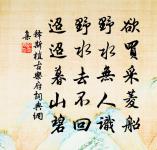 欲買采菱船
野水無人識
野水去不回
迢迢暮山碧
釋斯植古樂府詞典網
集